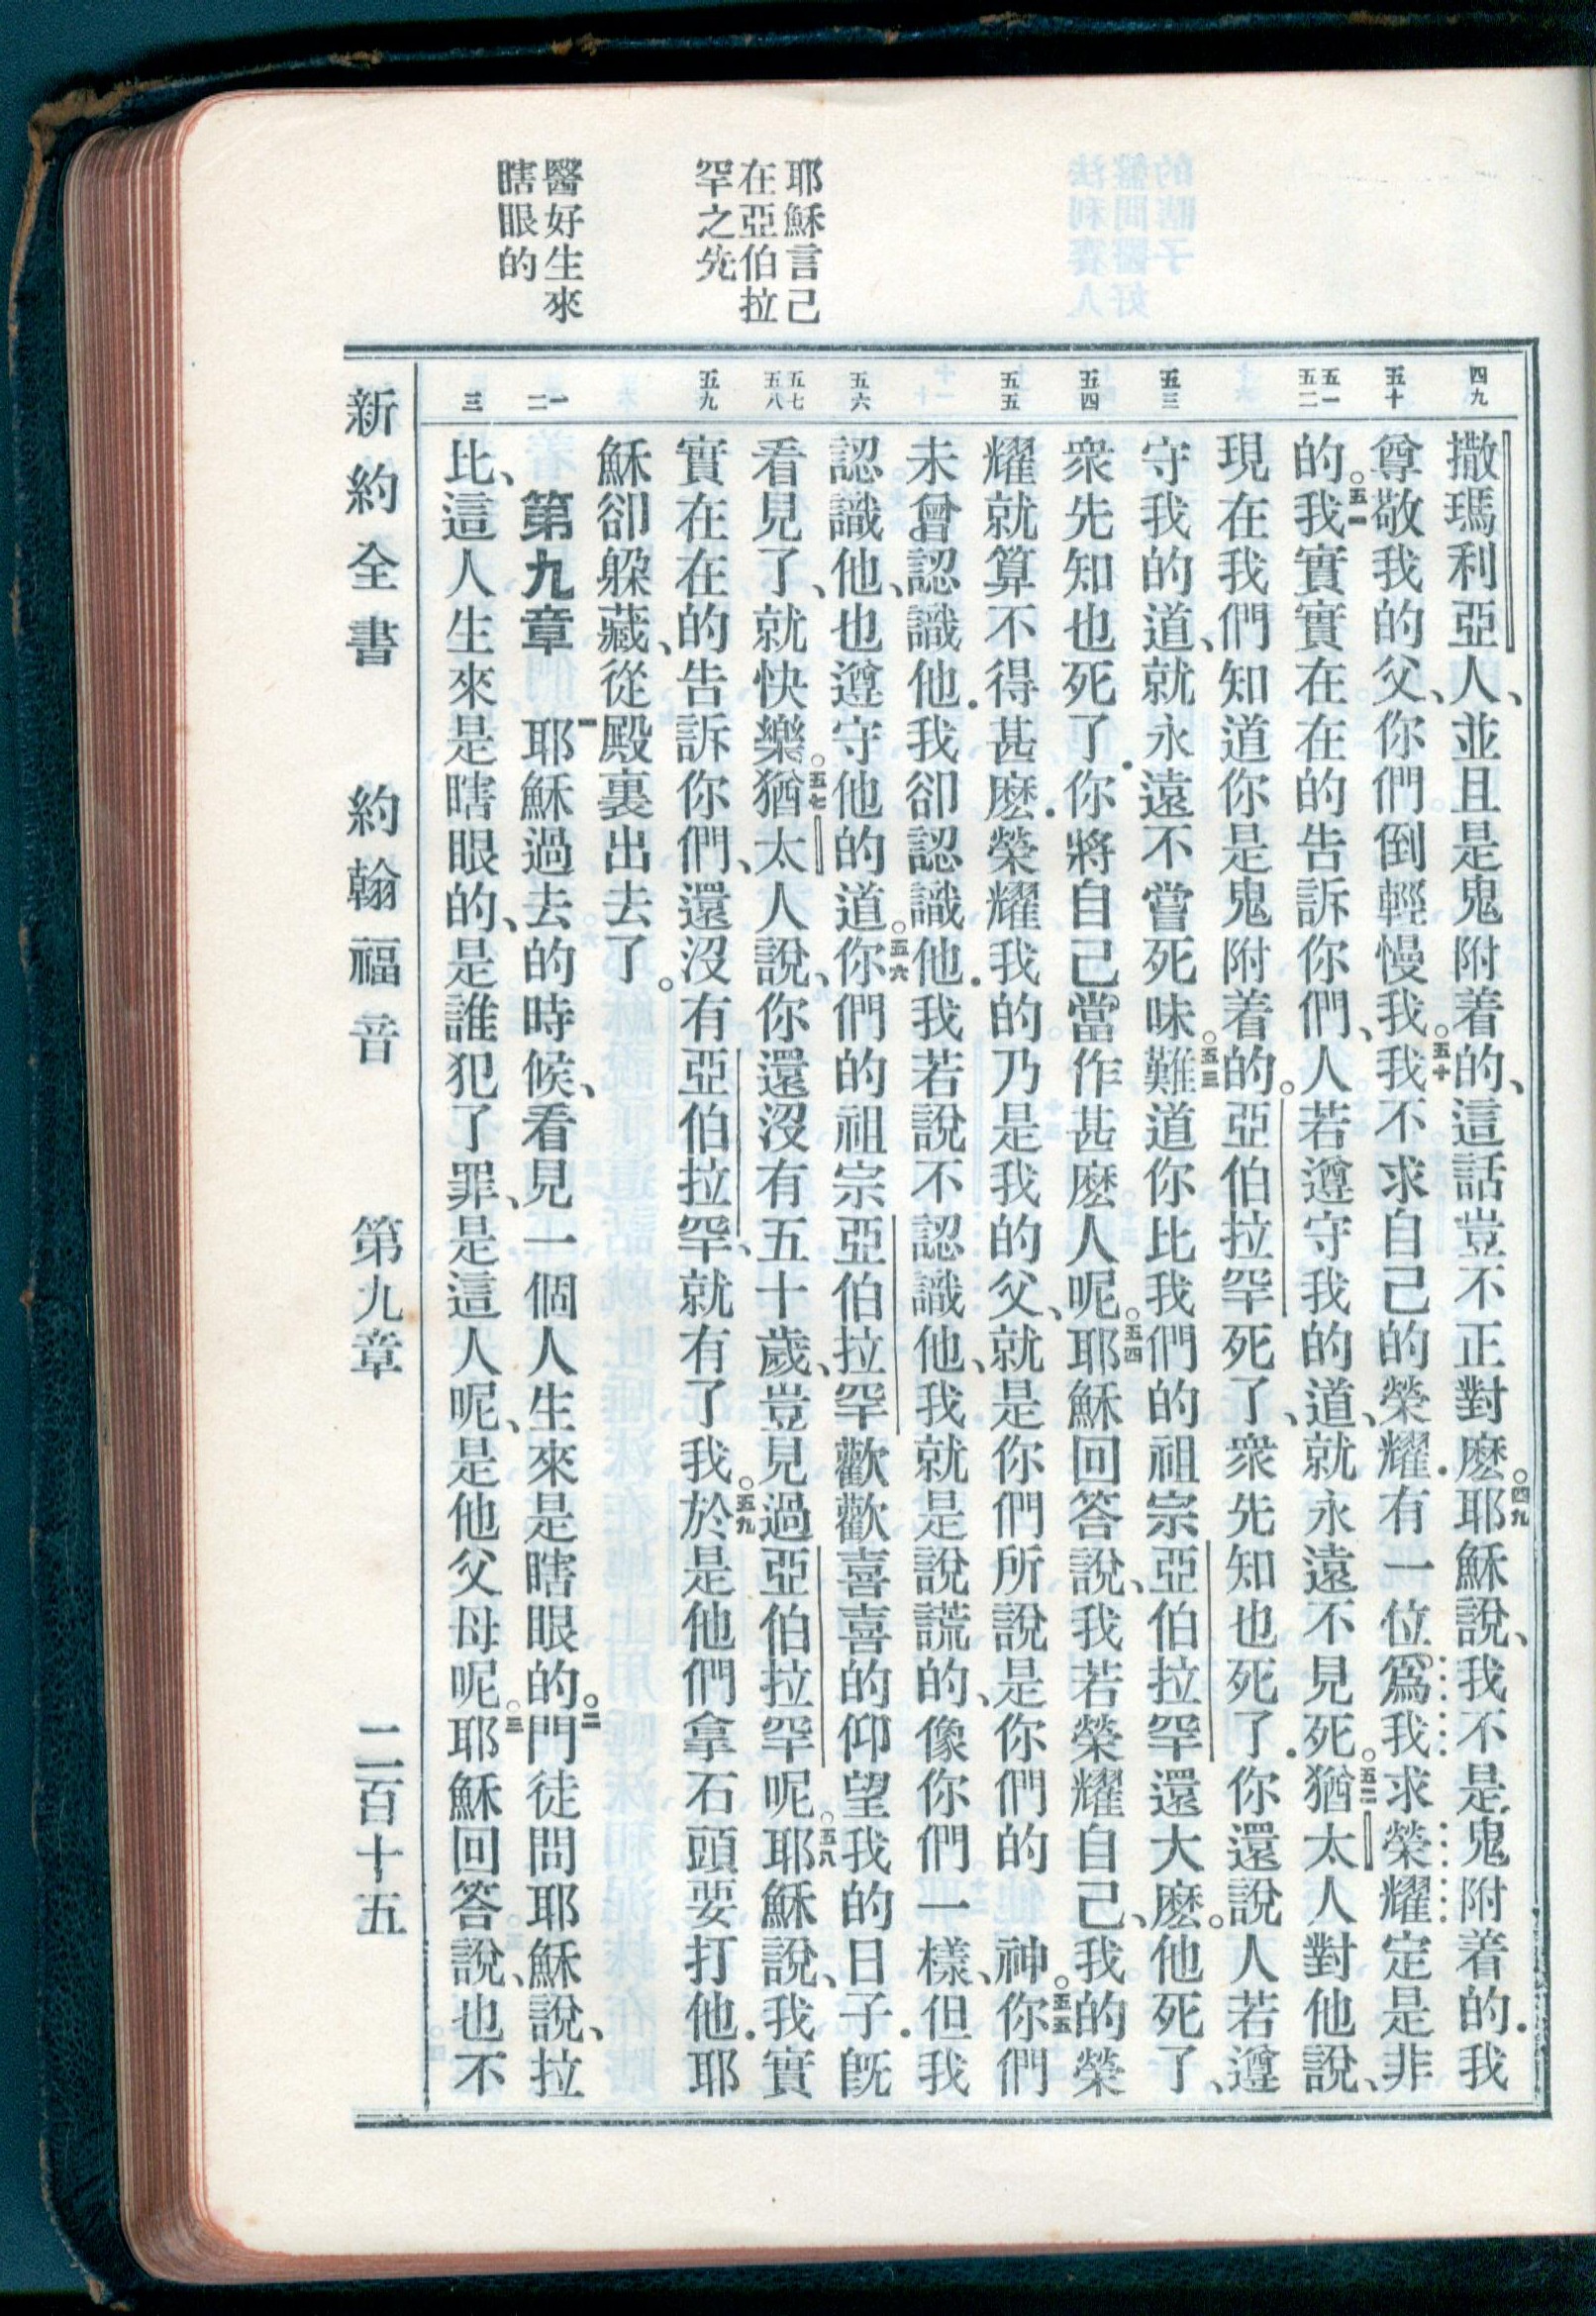 耶穌言己
在亞伯拉
罕之先
醫好生來
瞎眼的
四九
五十
五一
五二
五三
五四
五五
五六
五七
五八
五九
一
二
三
撒瑪利亞人、並且是鬼附着的、這話豈不正對麽。四九耶穌說、我不是鬼附着的．我
尊敬我的父、你們倒輕慢我。五十我不求自己的榮耀．有一位爲我求榮耀定是非
的。五一我實實在在的告訴你們、人若遵守我的道、就永遠不見死。五二猶太人對他說、
現在我們知道你是鬼附着的。亞伯拉罕死了、衆先知也死了．你還說人若遵
守我的道、就永遠不嘗死味。五三難道你比我們的祖宗亞伯拉罕還大麽。他死了、
衆先知也死了．你將自己當作甚麽人呢。五四耶穌回答說、我若榮耀自己、我的榮
耀就算不得甚麽．榮耀我的乃是我的父、就是你們所說是你們的　神。五五你們
未曾認識他．我卻認識他．我若說不認識他、我就是說謊的、像你們一樣、但我
認識他、也遵守他的道。五六你們的祖宗亞伯拉罕歡歡喜喜的仰望我的日子．旣
看見了、就快樂。五七猶太人說、你還沒有五十歲、豈見過亞伯拉罕呢。五八耶穌說、我實
實在在的告訴你們、還沒有亞伯拉罕、就有了我。五九於是他們拿石頭要打他．耶
穌卻躱藏、從殿裏出去了。
第九章　一耶穌過去的時候、看見一個人生來是瞎眼的。二門徒問耶穌說、拉
比、這人生來是瞎眼的、是誰犯了罪、是這人呢、是他父母呢。三耶穌回答說、也不
新約全書　約翰福音　第九章　二百十五